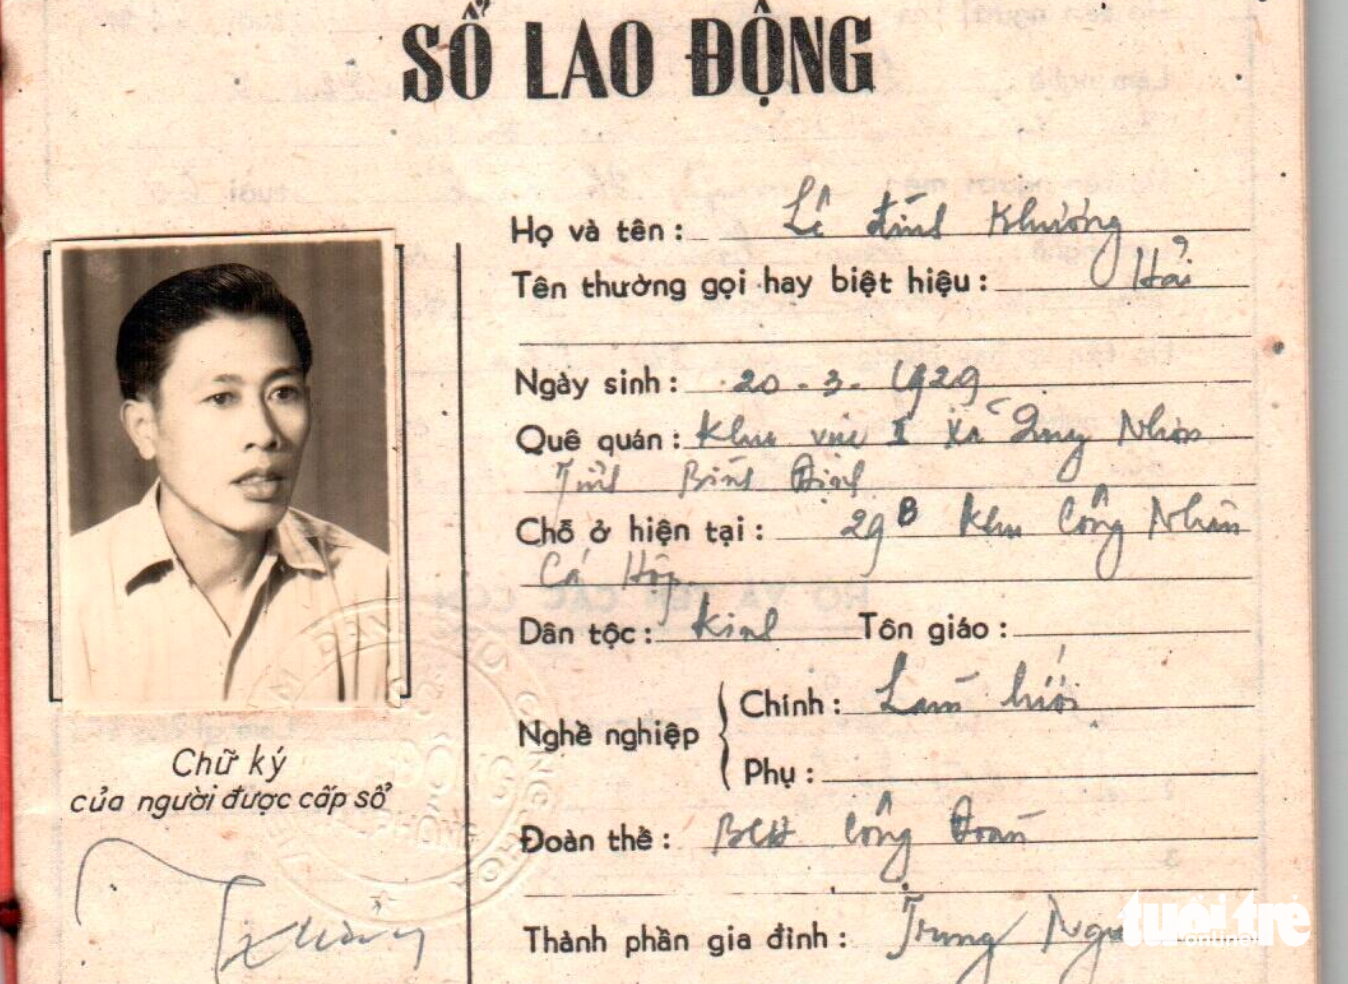 SỔ LAO ĐỘNG
Họ và tên : Lê đình Khương
Tên thường gọi hay biệt hiệu : Hải
Ngày sinh : 20 - 3 - 1929
Quê quán : Khu vực II Xã Quy Nhơn
Tỉnh Bình Định
Chỗ ở hiện tại : 29B Khu Công Nhân
Cá Hộp
Dân tộc : Kinh Tôn giáo :
Nghề nghiệp
Chính : Làm lưới
Phụ :
Đoàn thể : BCH Công Đoàn
Thành phần gia đình : Trung
Chữ ký
của người được cấp sổ
tuổi trẻ
online